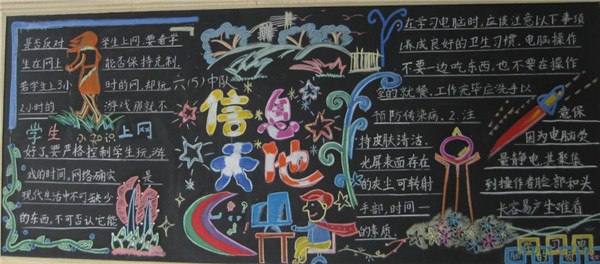 是否反对学生上网,要看学
生在网上能否保持克制.
若学生上3小时的网,却玩
2小时的游戏,那就不
好了,要严格控制学生玩游
戏的时间,网络确实是
现代生活中不可缺少
的东西,不可否认它能
学生上网
六(5)中队
信息
天地
在学习电脑时,应该注意以下事项
1.养成良好的卫生习惯.电脑操作
不要一边吃东西,也不要在操作
室内就餐.工作完毕应洗手以
预防传染病.2.注意保
持皮肤清洁.因为电脑荧
光屏表面存在最静电,其聚集
的灰尘可转射到操作者脸部和
手部,时间一长容易产生难看
的素质.